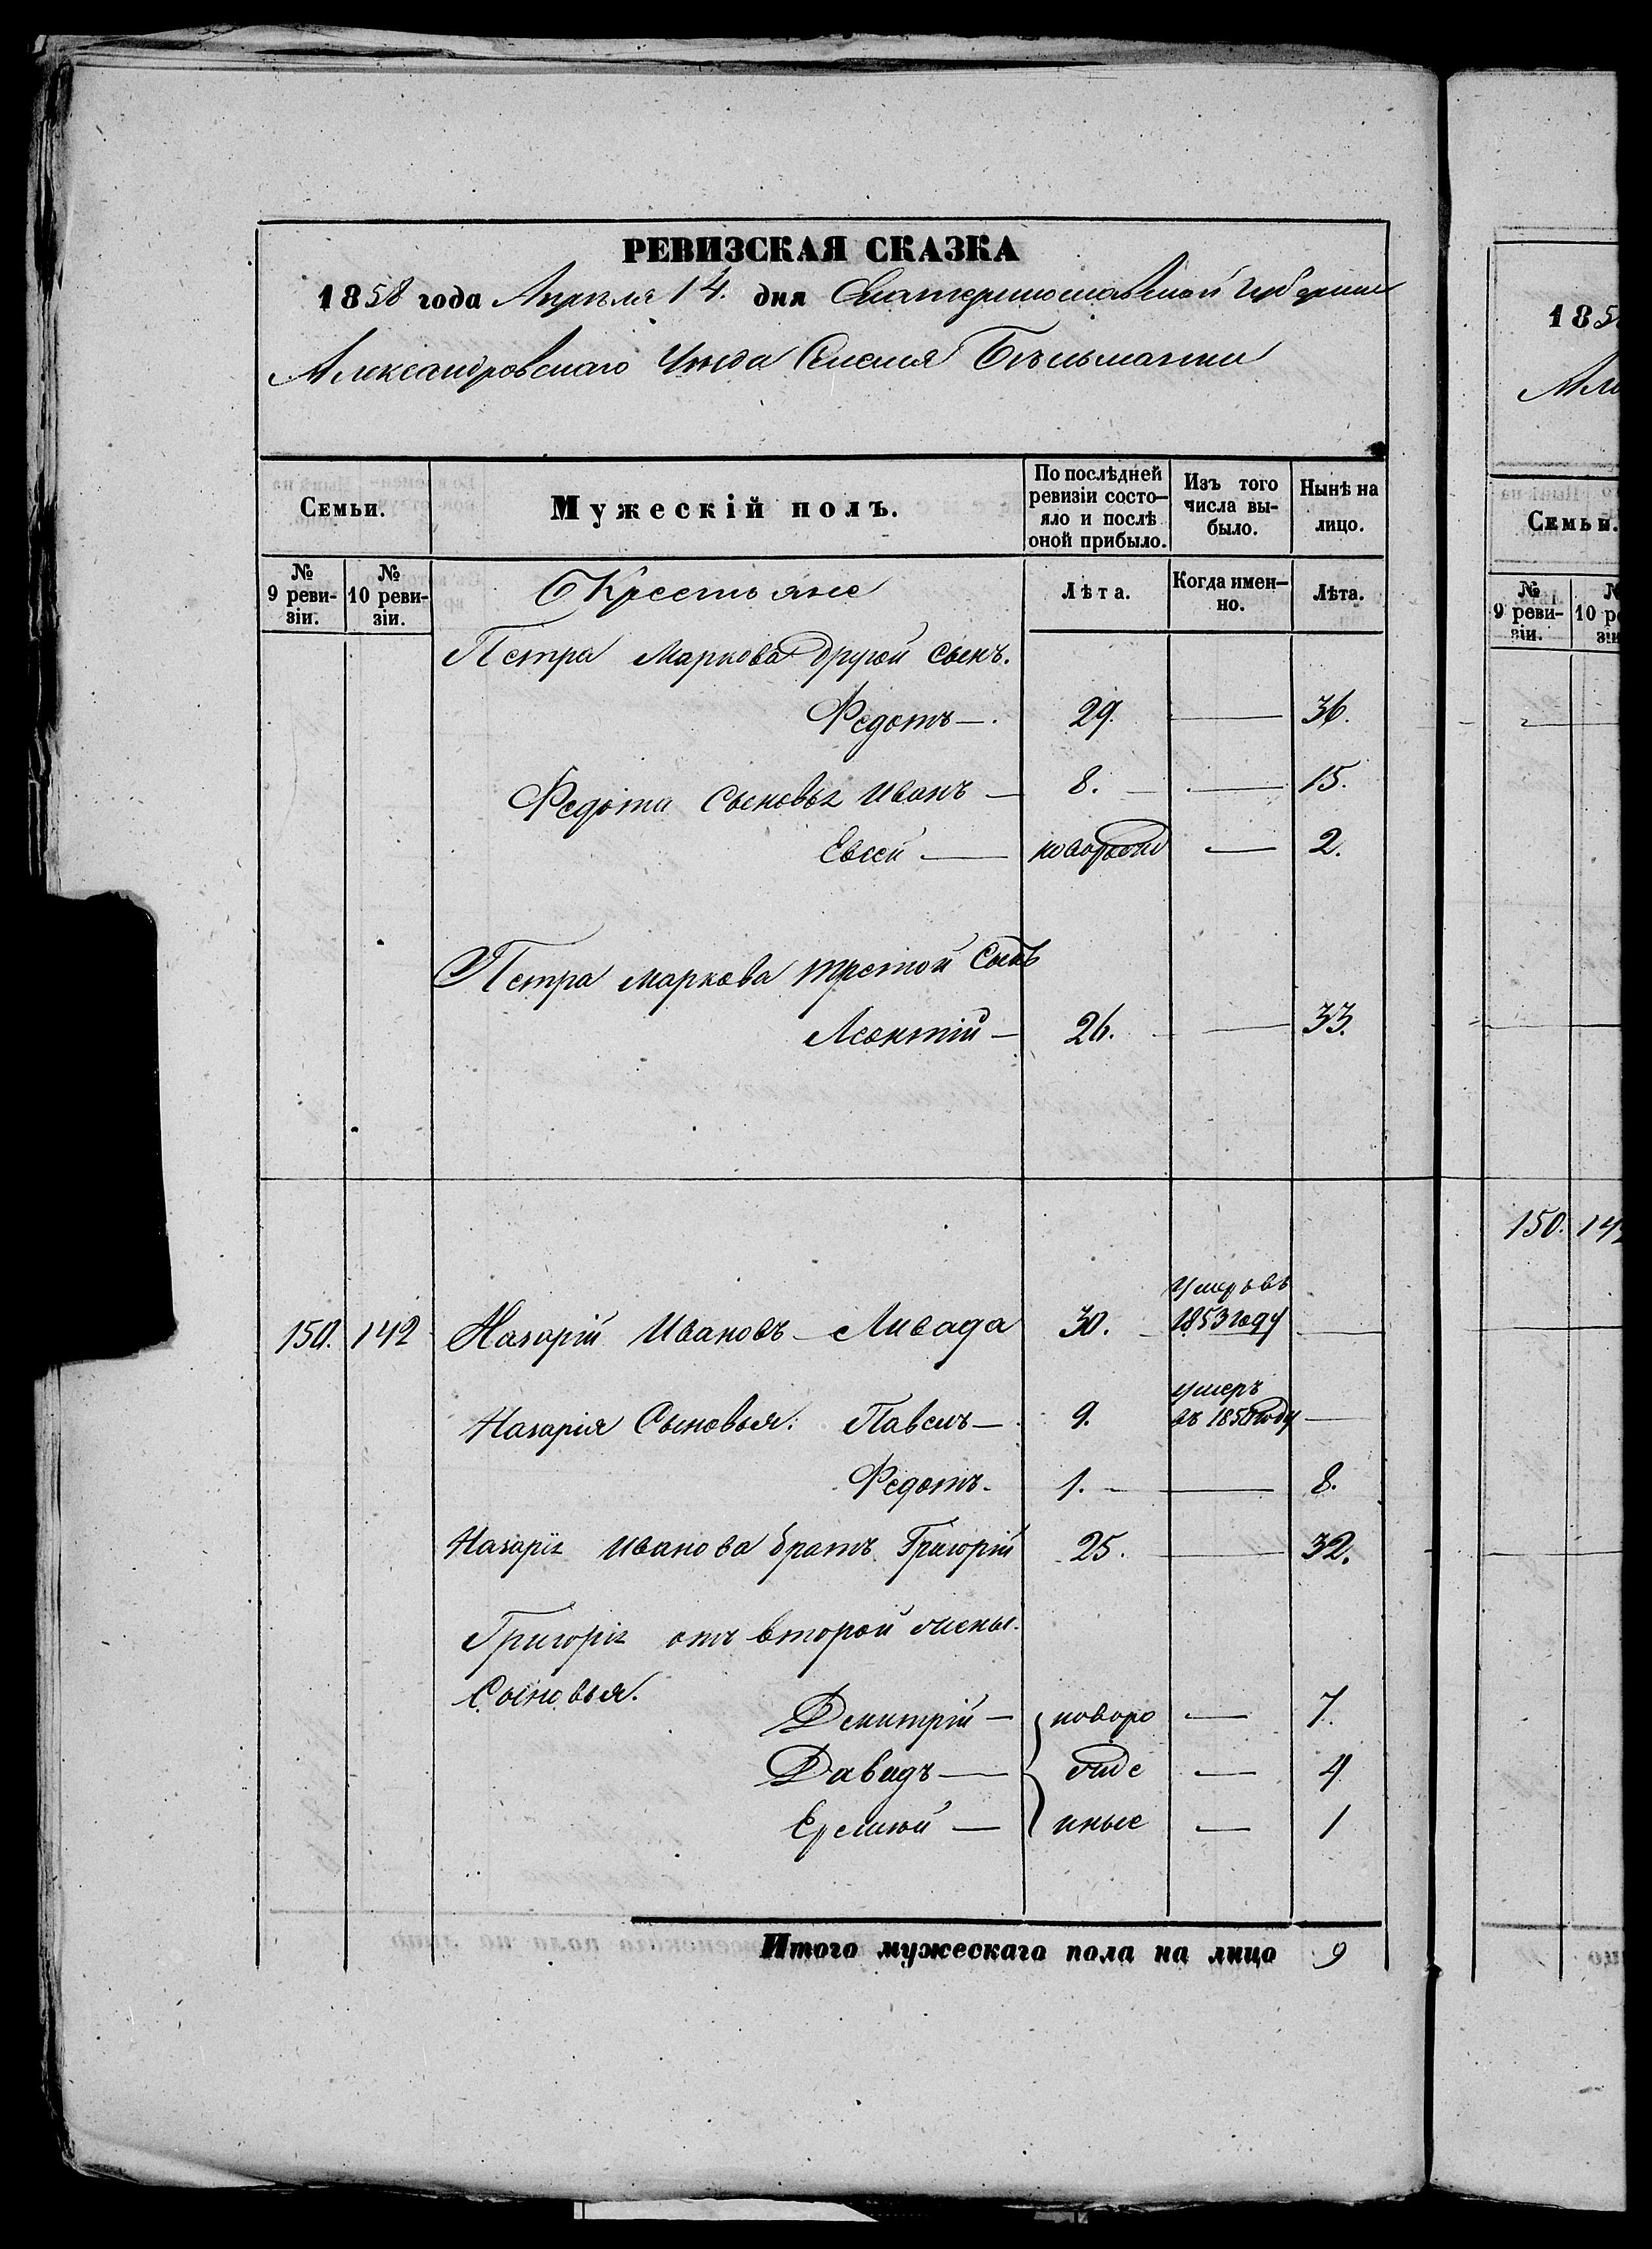 РЕВИЗСКАЯ СКАЗКА
1858 года Апреля 14. дня Екатеринославской Губернии
Александровскаго Уезда Селения Бѣльманки
Семьи.
Мужескій полъ.
По послѣдней ревизіи состояло и послѣ оной прибыло.
Изъ того числа выбыло.
Нынѣ на лицо.
№ 9 ревизіи.
№ 10 ревизіи.
Крестьяне
Лѣта.
Когда именно.
Лѣта.
Петра Маркова другой сынъ.
Федотъ —. 29. — 36.
Федота сыновья Иванъ — 8. — 15.
Евсей — новорожд — 2.
Петра Маркова третой Сынъ
Леонтій — 26. — 33.
150. 142 Назарій Ивановъ Ливада 30. Умеръ въ 1853 году —
Назарія Сыновья: Павелъ — 9. умеръ въ 1850 году —
Федотъ. 1. — 8.
Назарія Иванова братъ Григорій 25. — 32.
Григорія отъ второй жены.
Сыновья.
Демитрій — новоро — 7.
Давидъ — жде — 4
Еремѣй — нные — 1
Итого мужескаго пола на лицо 9
185
Але
Семьи.
№ 9 ревизіи.
150. 142